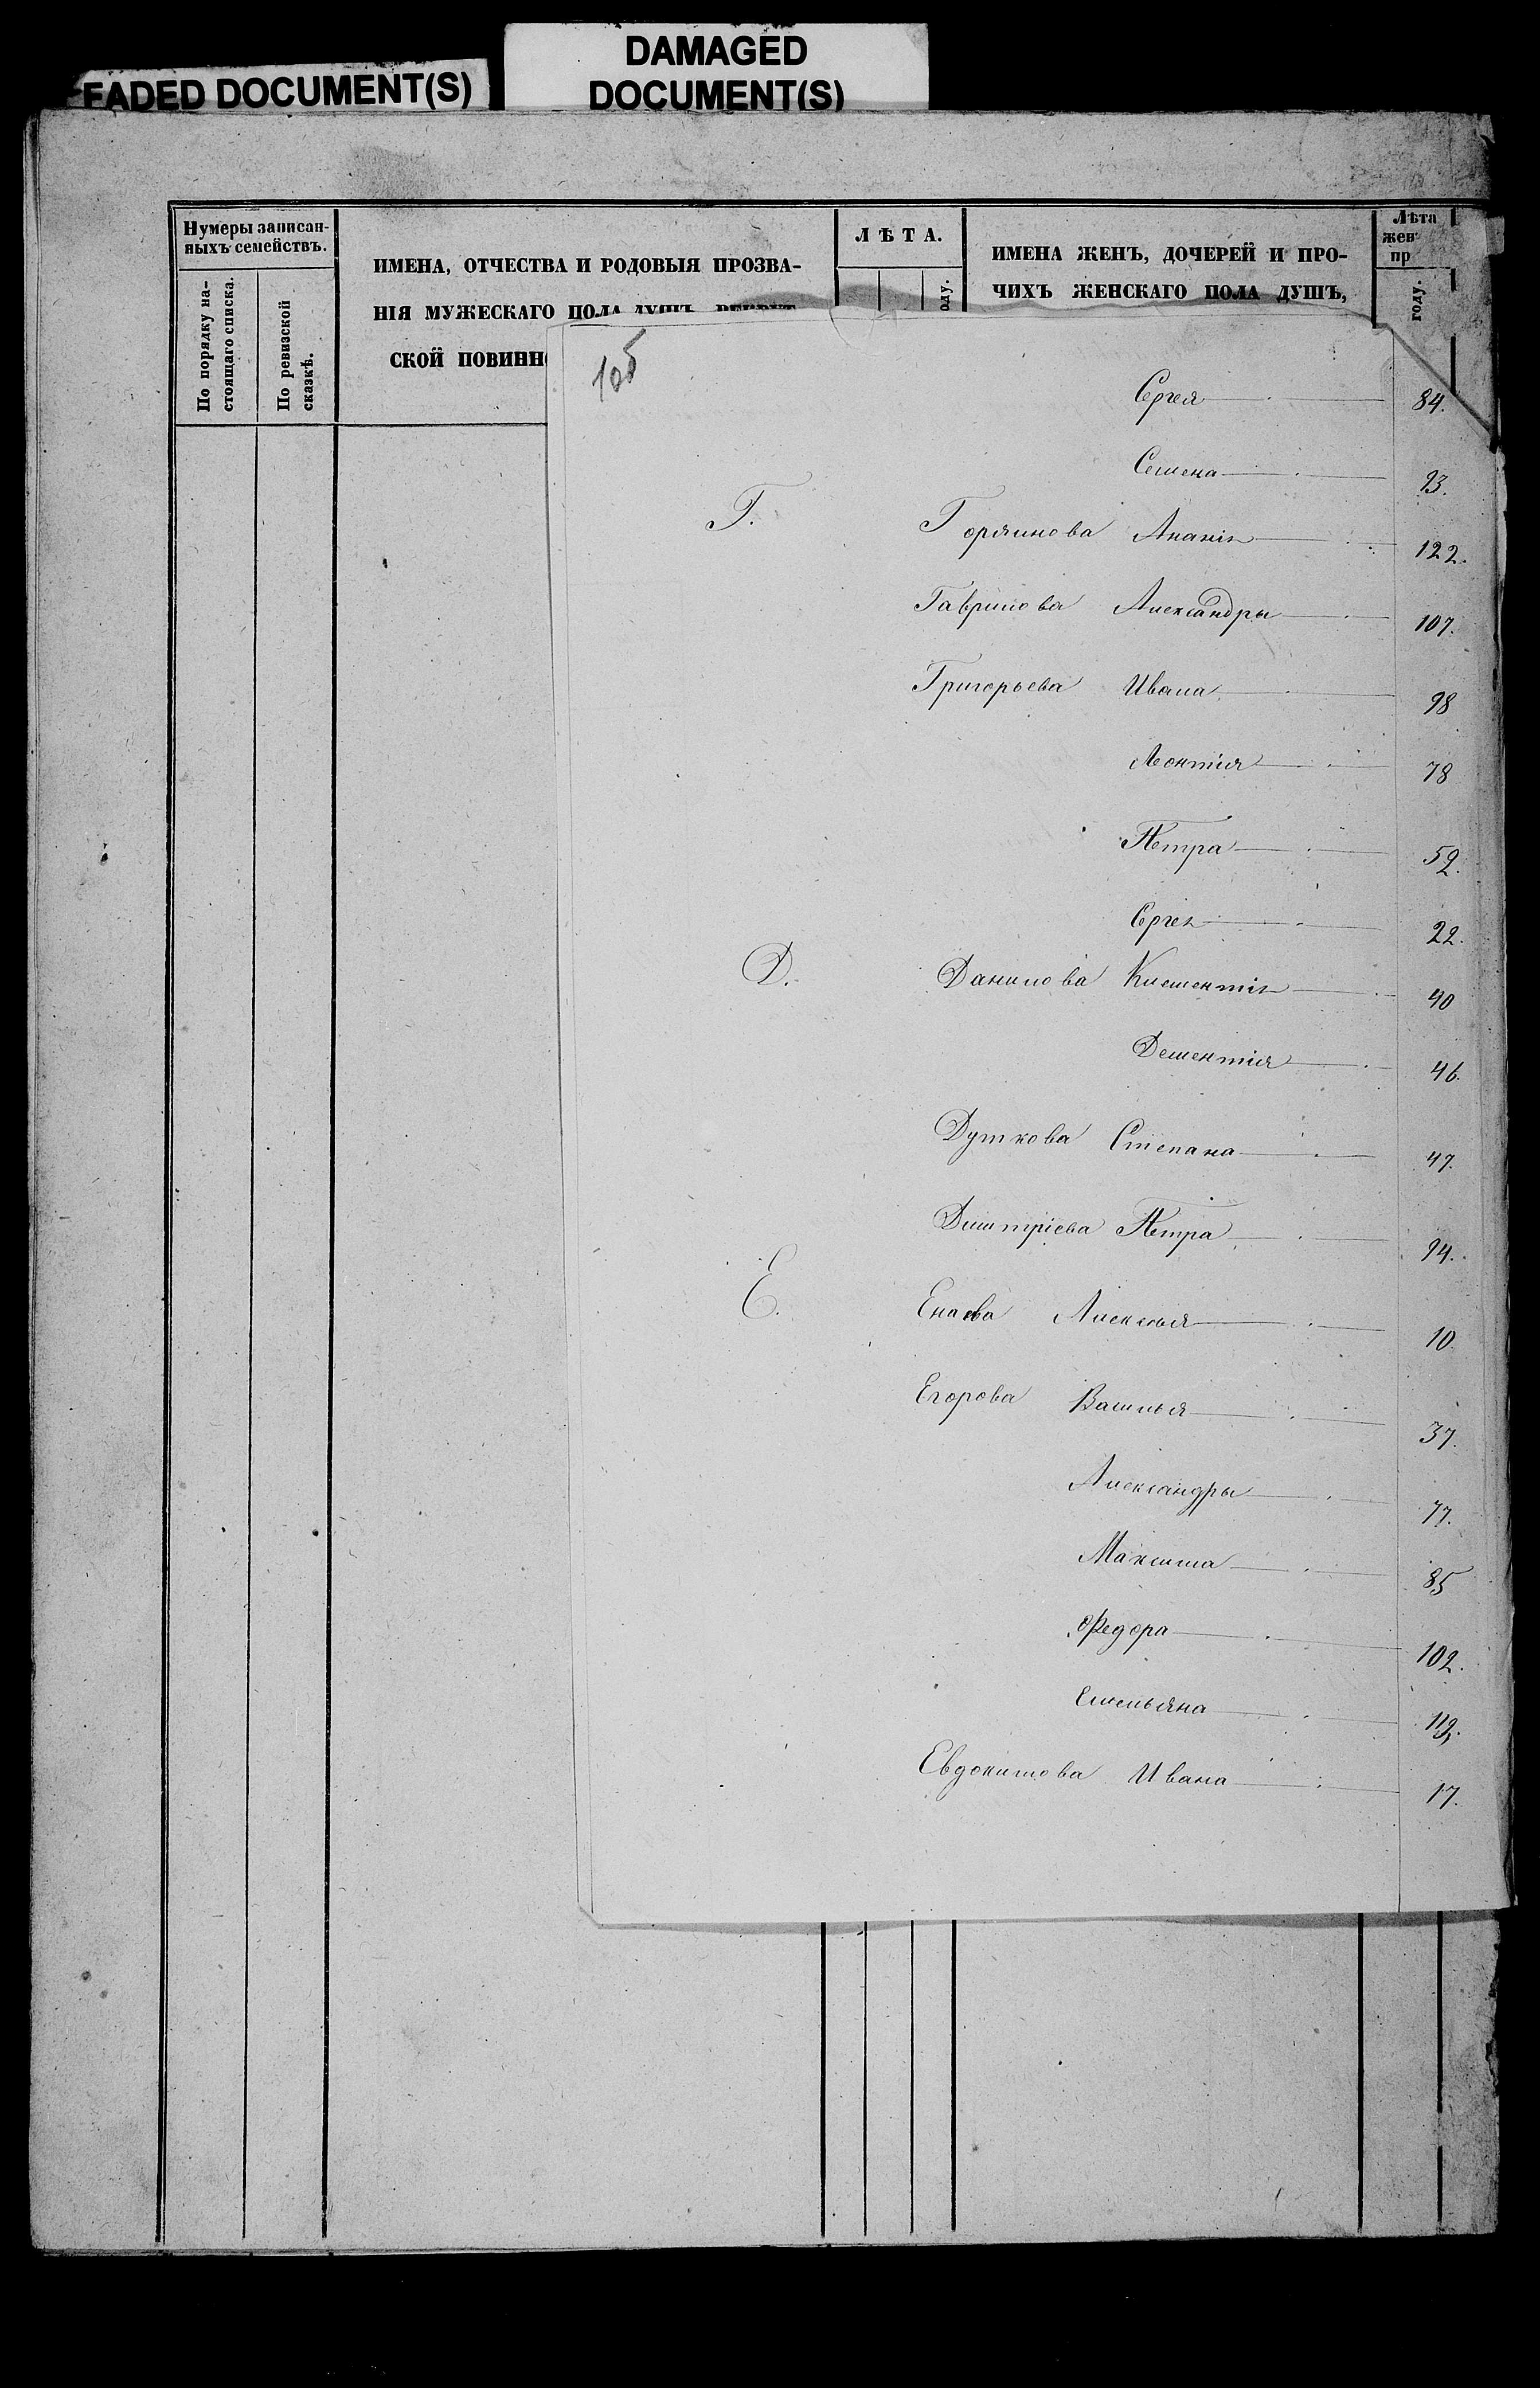 FADED DOCUMENT(S)
DAMAGED
DOCUMENT(S)
Нумеры записан-
ныхъ семействъ.
По порядку на-
стоящаго списка.
По ревизской
сказкѣ.
ИМЕНА, ОТЧЕСТВА И РОДОВЫЯ ПРОЗВА-
НІЯ МУЖЕСКАГО ПОЛА ДУШЪ, РЕКРУТ-
СКОЙ ПОВИНН
ЛѢТА.
оду.
ИМЕНА ЖЕНЪ, ДОЧЕРЕЙ И ПРО-
ЧИХЪ ЖЕНСКАГО ПОЛА ДУШЪ,
Лѣта
жен
пр
году.
105
Сергея 84.
Семена 93.
Г. Горяинова Ананія 122.
Гаврилова Александры 107.
Григорьева Ивана 98
Леонтія 78
Петра 52.
Сергея 22.
Д. Данилова Клементія 40
Дементія 46.
Дуткова Степана 47.
Димитріева Петра 94.
Е. Енаева Алексея 10
Егорова Василья 37.
Александры 77.
Максима 85
Федора 102.
Емельяна 113.
Евдокимова Ивана 17.